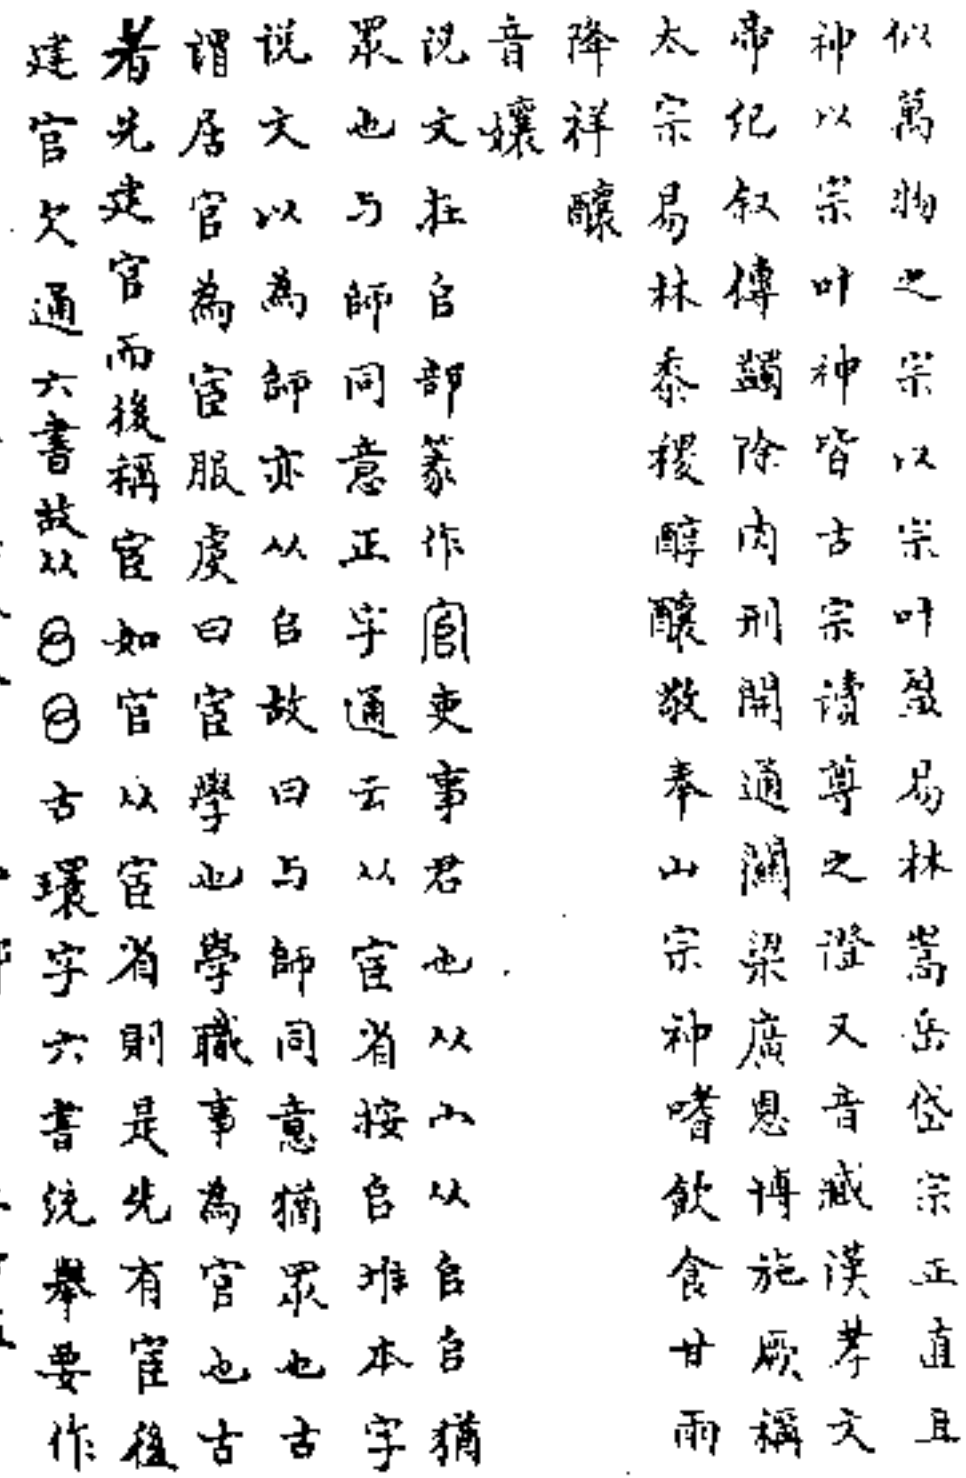 似萬物之宗以宗叶盈易林嵩岳岱宗正直且
神以宗叶神皆古宗讀尊之證又音臧漢孝文
帝紀叙傳蠲除肉刑開通關梁廣恩博施厥稱
太宗易林黍稷醇醲敬奉山宗神嗜飲食甘雨
降祥醲
音孃
説文在𠂤部篆作官吏事君也从宀从𠂤𠂤猶
眾也与師同意正字通云从宦省按𠂤堆本字
説文以為師亦从𠂤故曰与師同意猶眾也古
謂居官為宦服虔曰宦學也學職事為官也古
者先建官而後稱宦如官从宦省則是先有宦後
建官欠通六書故从吕吕古環字六書统舉要作